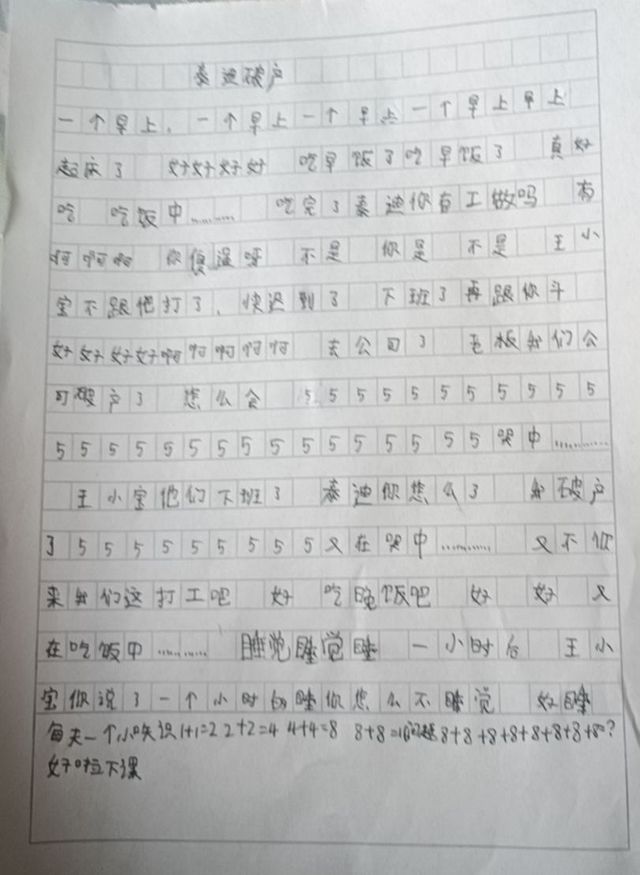 泰迪破户
一个早上，一个早上一个早点一个早上早上
起床了 好好好好 吃早饭了吃早饭了 真好
吃 吃饭中……… 吃完了泰迪你有工做吗 有
啊啊啊 你傻逼呀 不是 你是 不是 王小
宝不跟他打了，快迟到了 下班了再跟你斗
好好好好啊啊啊啊啊 去公司了 老板我们公
司破户了 怎么会 5 5 5 5 5 5 5 5 5 5 5
5 5 5 5 5 5 5 5 5 5 5 5 5 5 5 5 哭中…………
王小宝他们下班了 泰迪你怎么了 我破户
了 5 5 5 5 5 5 5 5 5 5 又在哭中……… 又不你
来我们这打工吧 好 吃晚饭吧 好 好 又
在吃饭中……… 睡觉睡觉睡 一小时后 王小
宝你说了一个小时的睡你怎么不睡觉 好睡
每天一个小知识1+1=2 2+2=4 4+4=8 8+8=16问题8+8+8+8+8+8+8+8=?
好啦下课